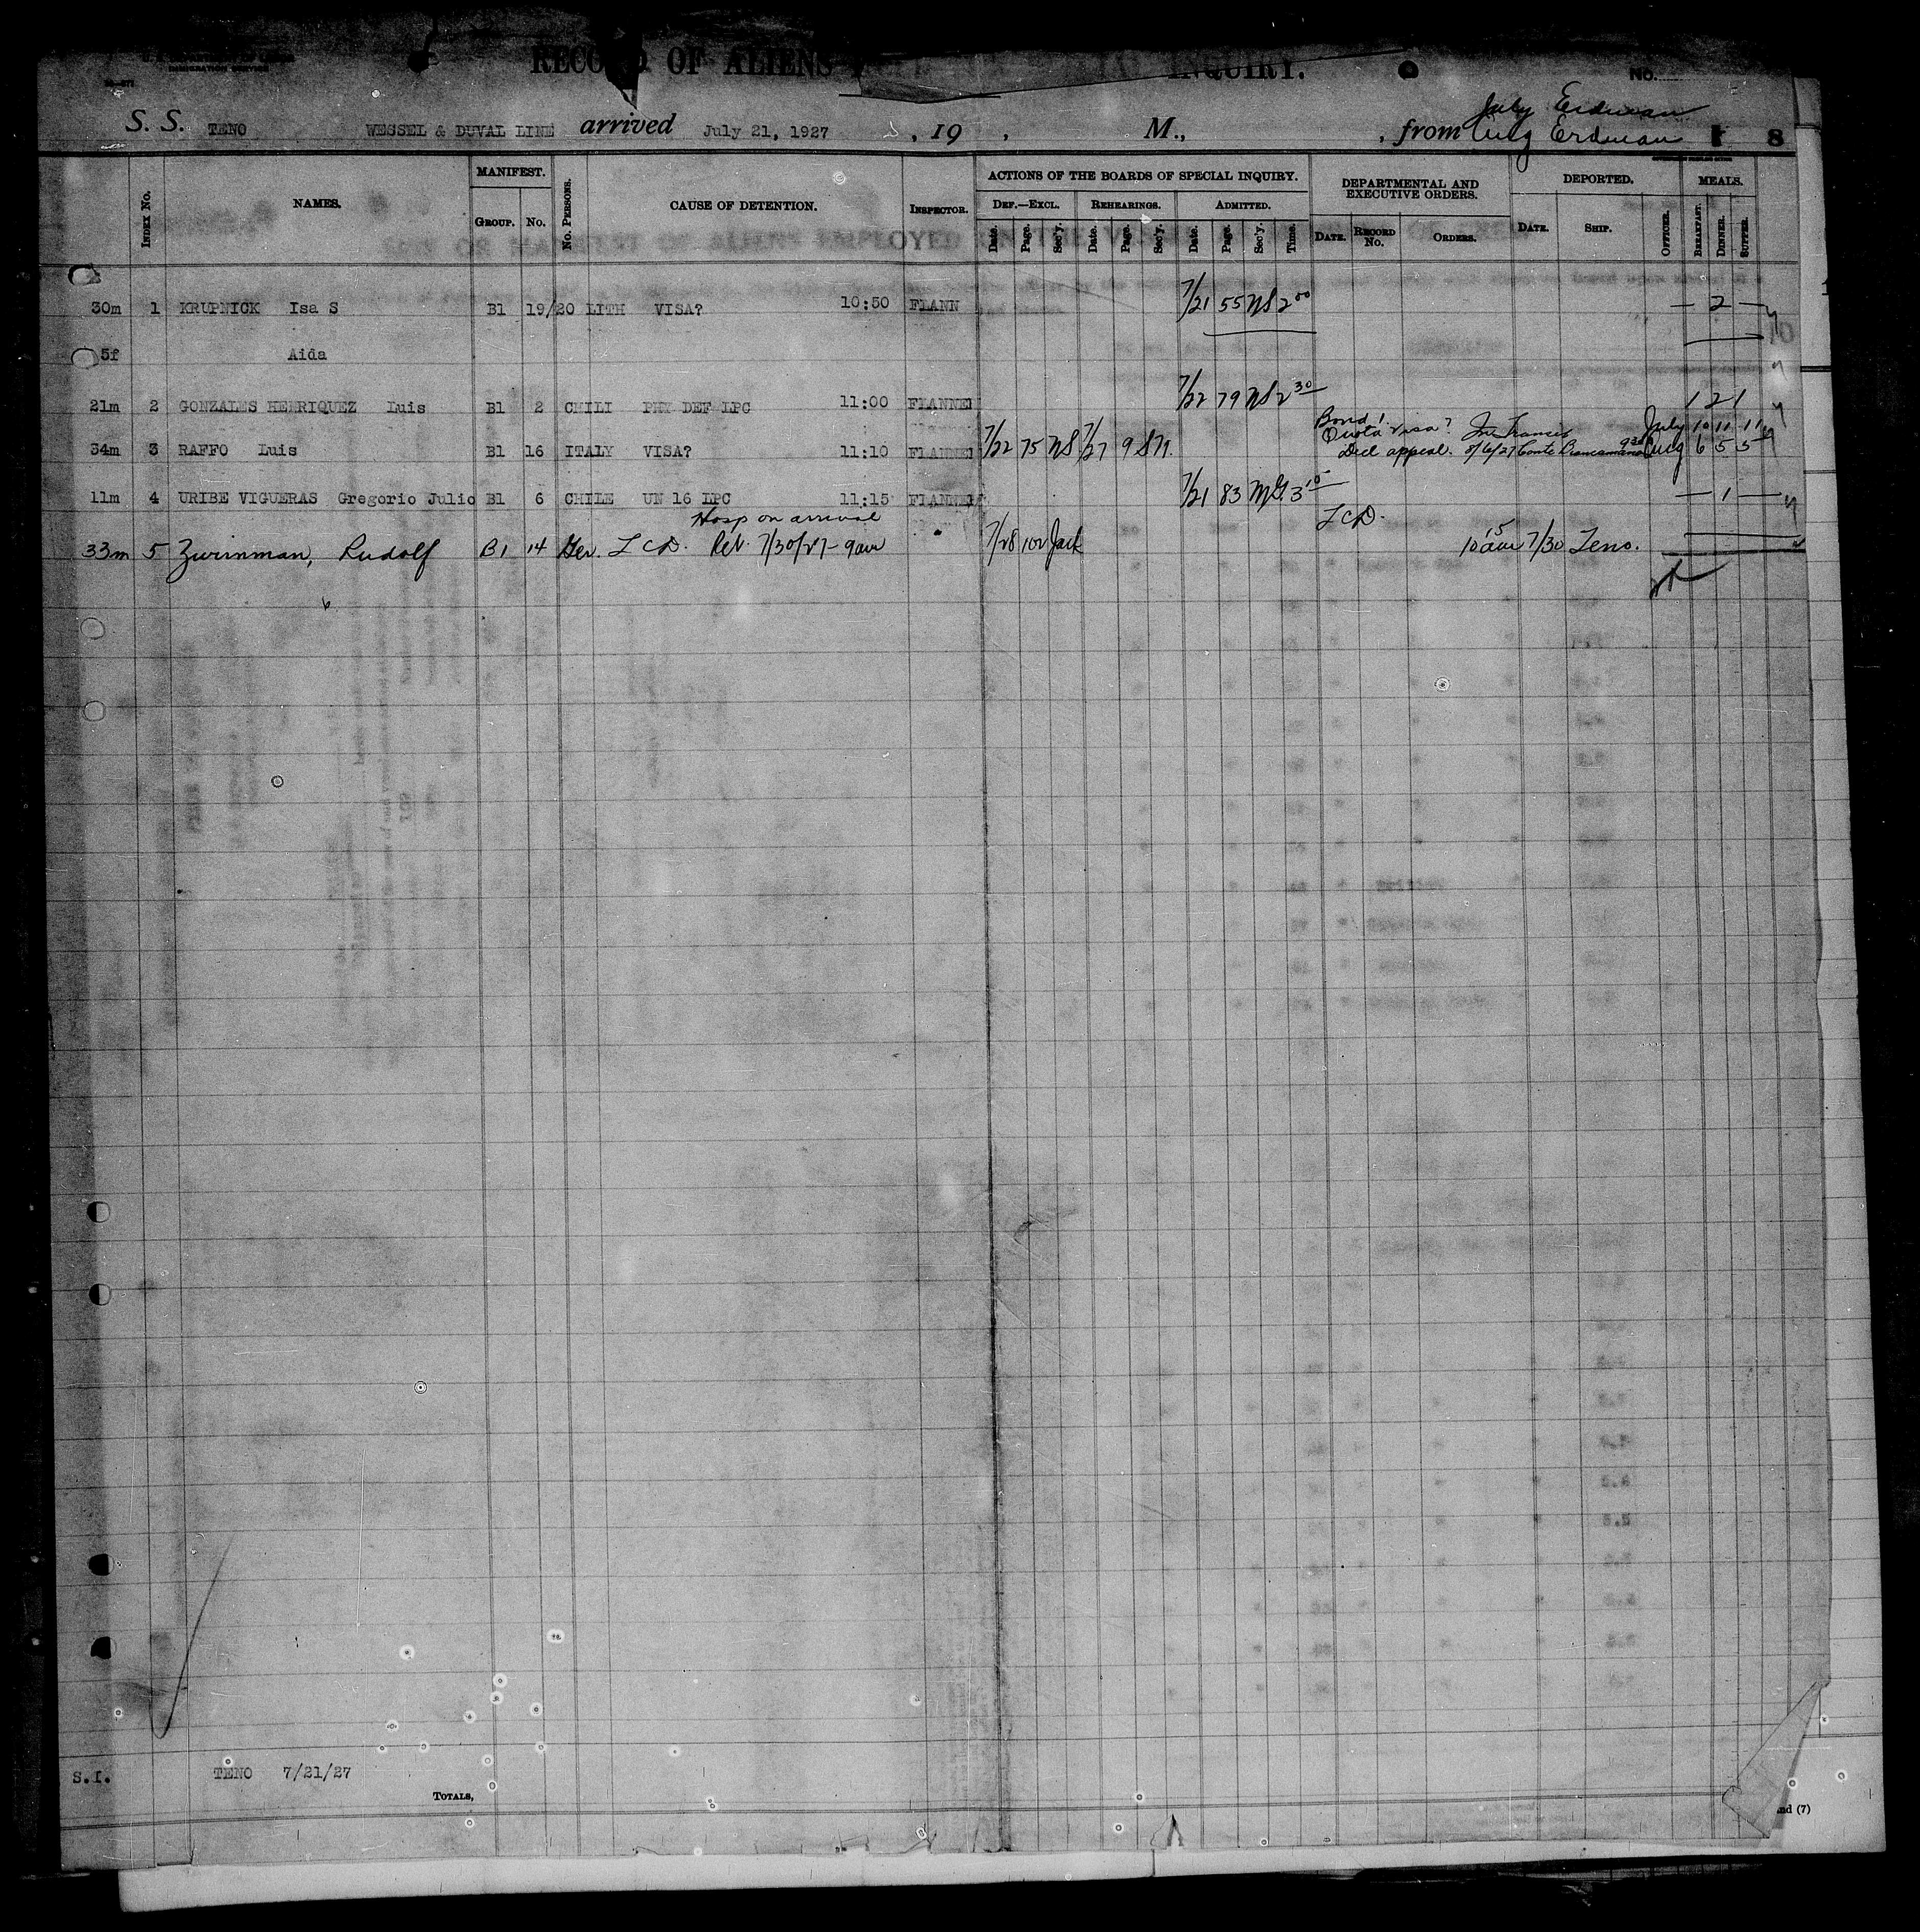 RECORD OF ALIENS INQUIRY.
IMMIGRATION SERVICE
No.
July Erdman
S. S. TENO WESSEL & DUVAL LINE arrived July 21, 1927 , 19 , M., , from Aug Erdman 8
INDEX No. NAMES. MANIFEST. GROUP. No. No. PERSONS. CAUSE OF DETENTION. INSPECTOR. ACTIONS OF THE BOARDS OF SPECIAL INQUIRY. DEPARTMENTAL AND EXECUTIVE ORDERS. DEPORTED. MEALS.
DEF.—EXCL. REHEARINGS. ADMITTED.
Date. Page. Sec'y. Date. Page. Sec'y. Date. Page. Sec'y. Time. DATE. RECORD No. ORDERS. DATE. SHIP. OFFICER. BREAKFAST. DINNER. SUPPER.
30m 1 KRUPNICK Isa S Bl 19/20 LITH VISA? 10:50 FLANN 7/21 55 NS 2 00 — 2 —
5f Aida
21m 2 GONZALES HENRIQUEZ Luis Bl 2 CHILI PHY DEF LPC 11:00 FLANNE 7/22 79 NS 2 30 1 2 1
Bond!
Quota visa? July 10 11 11
34m 3 RAFFO Luis Bl 16 ITALY VISA? 11:10 FLANNE 7/22 75 NS 7/27 9 SN. Decl appeal. 8/6/27 Conte Biancamano Aug 6 5 5
11m 4 URIBE VIGUERAS Gregorio Julio Bl 6 CHILE UN 16 LPC 11:15 FLANNE 7/21 83 3 15 — 1 —
Hosp on arrival LCD.
33m 5 Zwinman, Rudolf Bl 14 Ger. LCD. Ret. 7/30/27 - 9am 7/28 102 Jack 10 15 am 7/30 Teno.
S.I. TENO 7/21/27
TOTALS,
and (7)